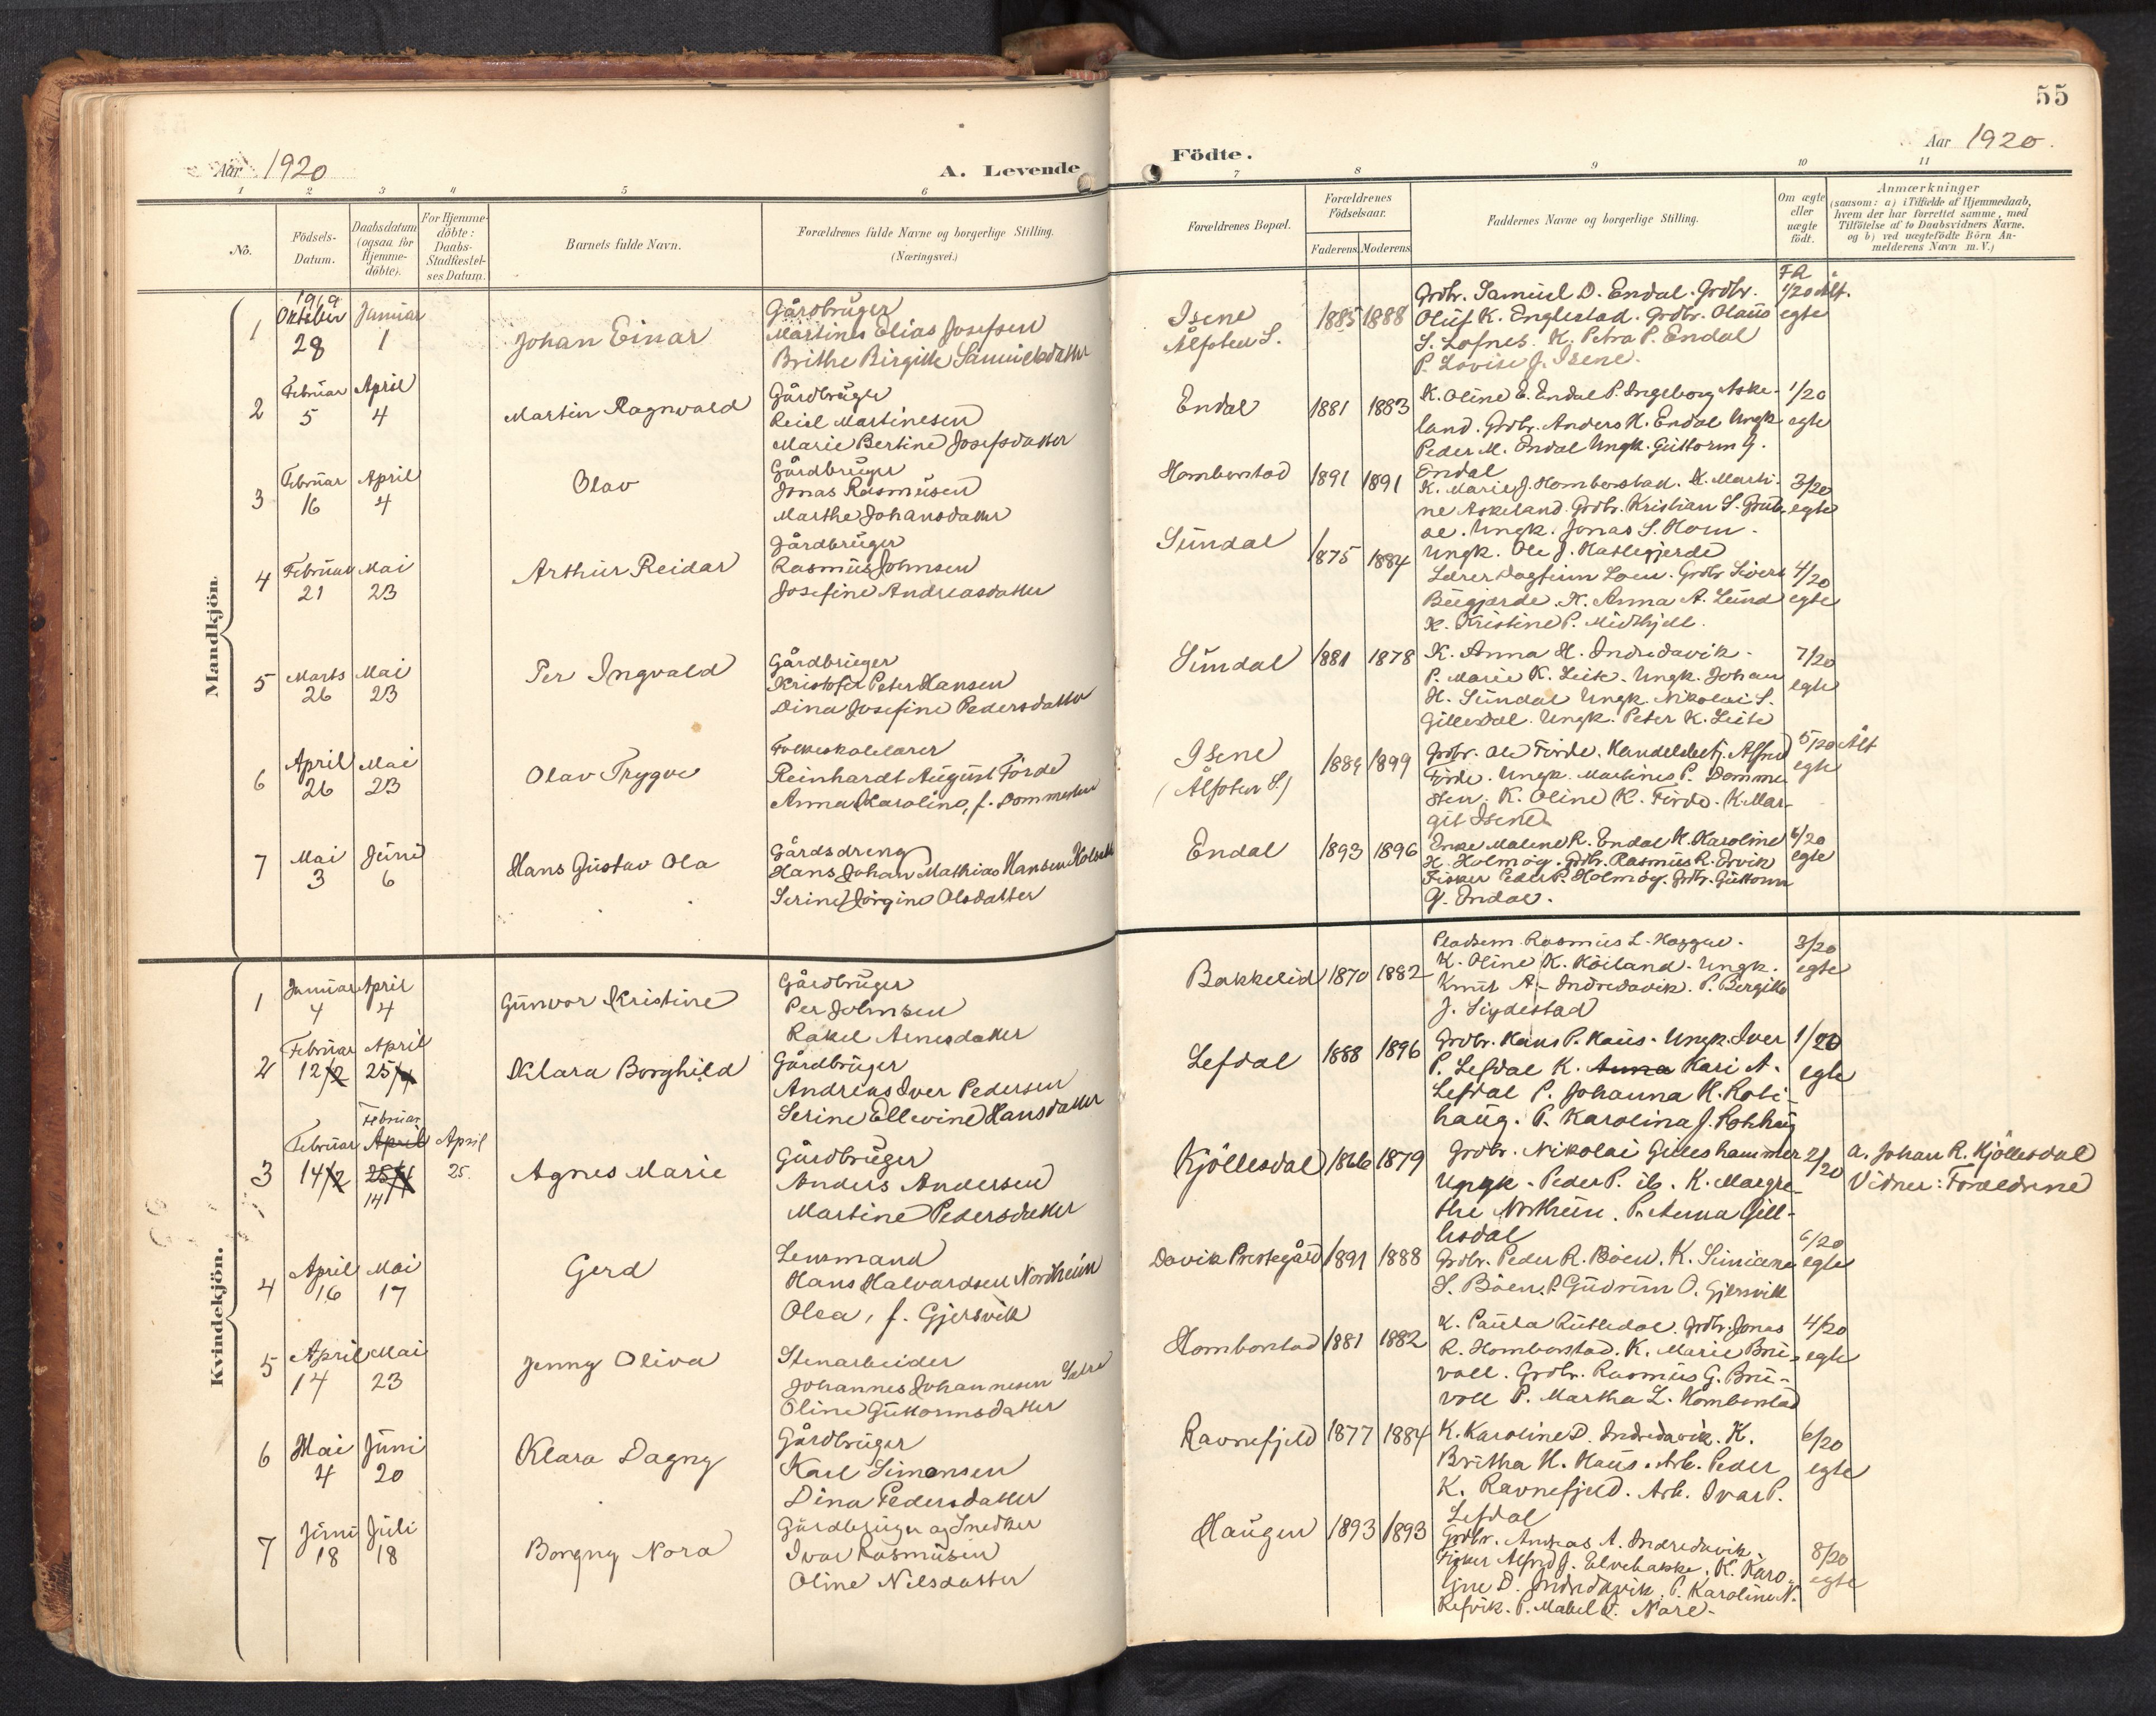 55
Aar 1920
A. Levende
Födte.
Aar 1920.
1 2 3 4 5 6 7 8 9 10 11
No.
Födsels-
Datum.
Daabsdatum
(ogsaa for
Hjemme-
döbte).
For Hjemme-
döbte:
Daabs-
Stadfæstel-
ses Datum.
Barnets fulde Navn.
Forældrenes fulde Navne og borgerlige Stilling.
(Næringsvei.)
Forældrenes Bopæl.
Forældrenes
Födselsaar.
Faderens. Moderens.
Faddernes Navne og borgerlige Stilling.
Om ægte
eller
uægte
födt.
Anmærkninger
(saasom: a) i Tilfælde af Hjemmedaab,
hvem der har forrettet samme, med
Tilföielse af to Daabsvidners Navne.
og b) ved uægtefödte Börn An-
melderens Navn m. V.)
Mandkjön.
1
1919
Oktober
28
Januar
1
Johan Einar
Gårdbruger
Martines Elias Josefsen
Brithe Birgitte Samuelsdatter
Isene
Ålfoten S.
1885 1888
Grdbr. Samuel D. Endal. Grdbr.
Oluf K. Englestad. Grdbr. Olaus
S. Lofnes. K. Petra P. Endal
P. Lovise J. Isene.
FR
1/20 Ålf.
egte
2
Februar
5
April
4
Martin Ragnvald
Gårdbruger
Reiel Martinesen
Marie Bertine Josefsdatter
Endal
1881 1883
K. Oline E. Endal P. Ingeborg Aske-
land. Grdbr. Anders K. Endal Ungk
Peder M. Endal Ungk. Guttorm G.
Endal
1/20
egte
3
Februar
16
April
4
Olav
Gårdbruger
Jonas Rasmusen
Marthe Johansdatter
Hombørstad
1891 1891
K. Marie J. Hombørstad. K. Marti-
ne Askeland. Grdbr. Kristian S.
Ungk. Jonas S.
Ungk. Ole J. Hatlegjerde
3/20
egte
4
Februar
21
Mai
23
Arthur Reidar
Gårdbruger
Rasmus Johnsen
Josefine Andreasdatter
Sundal
1875 1884
Lærer Dagfinn Loen. Grdbr Sivert
Buegjærde. K. Anna A. Lund
K. Kristine P. Midthjell.
4/20
egte
5
Marts
26
Mai
23
Per Ingvald
Gårdbruger
Kristofer Peter Hansen
Dina Josefine Pedersdatter
Sundal
1881 1878
K. Anna H. Indredavik.
P. Marie K. Leite. Ungk. Johan
H. Sundal Ungk. Nikolai S.
Gillesdal. Ungk. Peter K. Leite
7/20
egte
6
April
26
Mai
23
Olav Trygve
Folkeskolelærer
Reinhardt August Förde
Anna Karoline, f. Dommersten
Isene
(Ålfoten S.)
1889 1899
Grdbr. Ole Förde. Handelsbetj. Alfred
Förde. Ungk. Martines P. Domme-
sten. K. Oline K. Förde. K. Mar-
git Isene
5/20 Ålf
egte
7
Mai
3
Juni
6
Hans Gustav Ola
Gårdsdreng
Hans Johan Mathias Hansen
Serine Jörgine Olsdatter
Endal
1893 1896
Enke Malene R. Endal K. Karoline
H. Holmøy. Grdbr. Rasmus R. Ervik
Fisker Peder P. Holmöy. Grdbr. Guttorm
G. Endal.
6/20
egte
Kvindekjön.
1
Januar
4
April
4
Gunvor Kristine
Gårdbruger
Per Johnsen
Rakel Arnesdatter
Bakkelid
1870 1882
Pladsem. Rasmus L. Haggal.
K. Oline K. Höiland. Ungk.
Knut A. Indredavik. P. Bergitte
J. Sigdestad
3/20
egte
2
Februar
12/2
April
25/4
Klara Borghild
Gårdbruger
Andreas Iver Pedersen
Serine Ellevine Hansdatter
Lefdal
1888 1896
Grdbr. Hans P. Haus. Ungk. Iver
P. Lefdal K. Anna Kari A.
Lefdal P. Johanna K. Roti-
haug. P. Karolina J.
1/20
egte
3
Februar
14/2
Februar
April
25/4
14
April
25.
Agnes Marie
Gårdbruger
Anders Andersen
Martine Pedersdatter
Kjöllesdal
1866 1879
Grdbr. Nikolai Gilleshammer
Ungk. Peder P. ib. K. Margre-
the Northeim. P. Anna Gill-
lisdal
2/20
a. Johan R. Kjöllesdal
Vidner: Forældrene
4
April
16
Mai
17
Gerd
Lensmand
Hans Halvardsen Nordheim
Olea, f. Gjersvik
Davik Prestegård
1891 1888
Grdbr. Peder R. Böen. K. Simiane
S. Böen. P. Gudrun O. Gjersvik
6/20
egte
5
April
14
Mai
23
Jenny Oliva
Stenarbeider
Johannes Johannesen Sætre
Oline Guttormsdatter
Hombørstad
1881 1882
K. Paula Rutledal. Grdbr. Jonas
R. Hombørstad. K. Marie Bru-
voll. Grdbr. Rasmus G. Bru-
voll P. Martha L. Hombørstad
4/20
egte
6
Mai
4
Juni
20
Klara Dagny
Gårdbruger
Karl Simonsen
Dina Pedersdatter
Ravnefjeld
1877 1884
K. Karoline D. Indredavik. K.
Britha K. Haus. Arb. Peder
K. Ravnefjeld. Arb. Ivar P.
Lefdal
6/20
egte
7
Juni
18
Juli
18
Borgny Nora
Gårdbruger og Snedker
Ivar Rasmusen
Oline Nilsdatter
Haugen
1893 1893
Grdbr. Andreas A. Indredavik.
Fisker Alfred J. Elvebakke. K. Karo-
line D. Indredavik. P. Karoline N.
Refvik. P. Mabel Nore.
8/20
egte